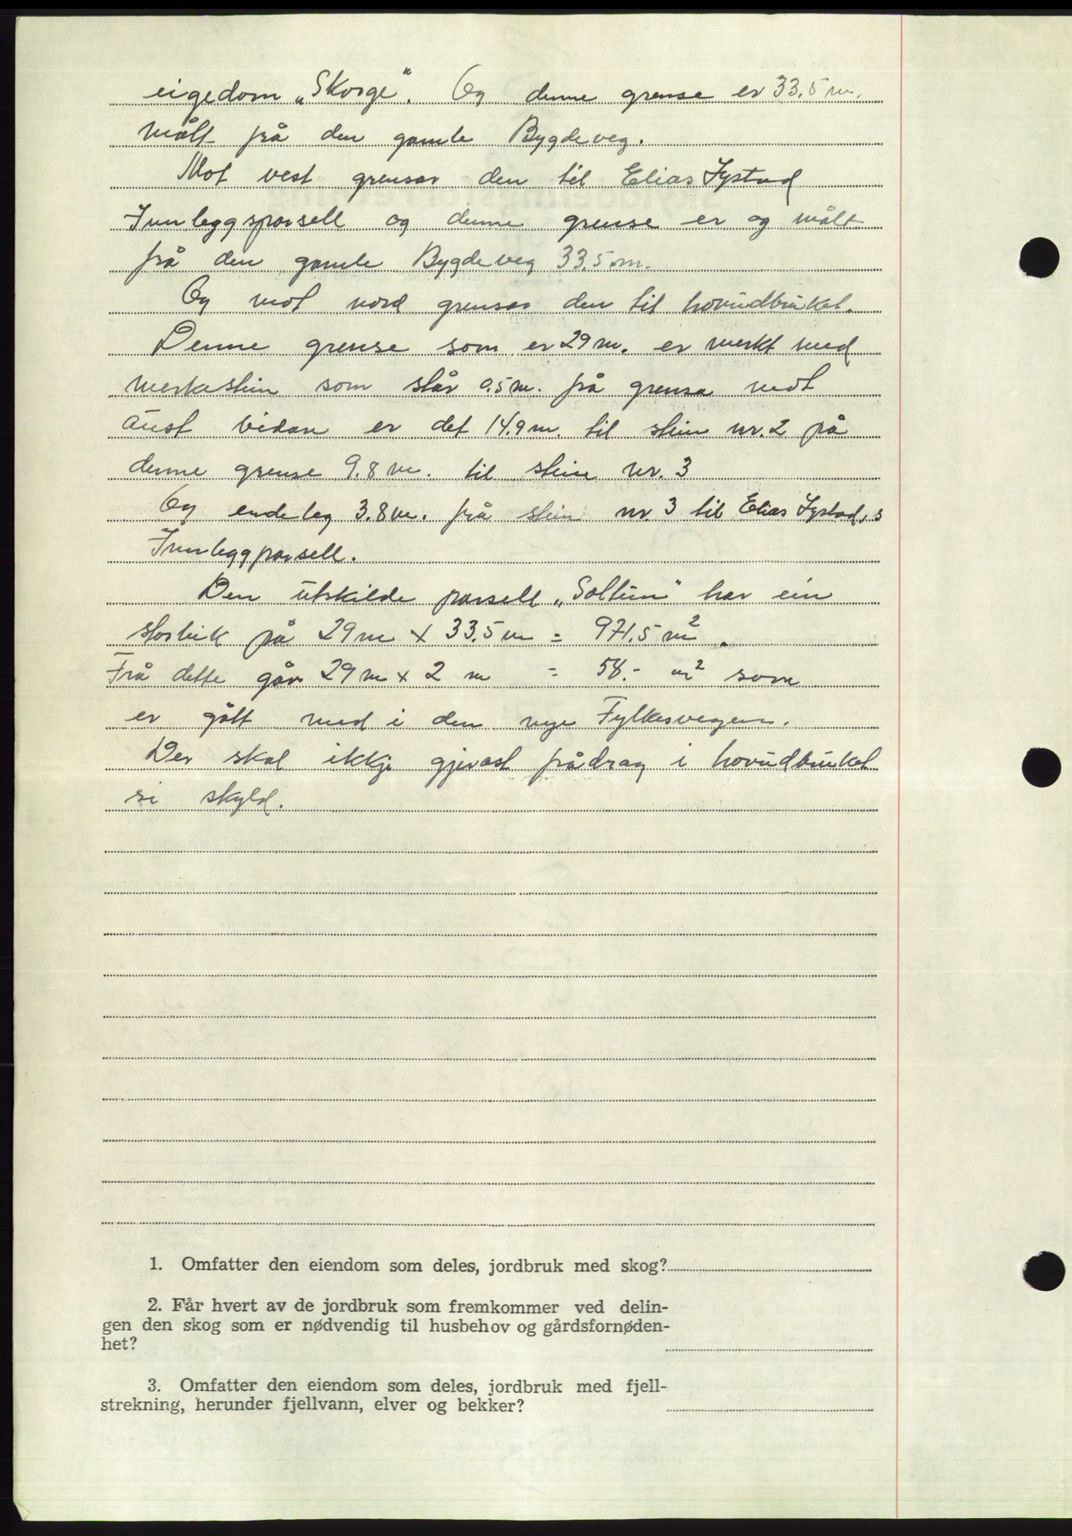 eigedom „Skorge". Og denne grense er 33,5 m.
målt frå den gamle Bygdeveg.
Mot vest grensar den til Elias Systad
Innleggsparsell og denne grense er og målt
frå den gamle Bygdeveg 33,5 m.
Og mot nord grensar den til hovudbruket.
Denne grense som er 29 m. er merkt med
merkestein som står 0.5 m. frå grensa mot
aust vidare er det 14.9 m. til stein nr. 2 på
denne grense 9.8 m. til stein nr. 3
Og endeleg 3.8 m. frå stein nr. 3 til Elias Systad,s
Innleggparsell.
Den utskilde parsell „Soltun" har ein
storleik på 29 m x 33.5 m = 971,5 m²
Frå dette går 29 m x 2 m = 58.- m² som
er gått med i den nye Fylkesvegen.
Der skal ikkje gjerast frådrag i hovudbruket
si skyld.
1. Omfatter den eiendom som deles, jordbruk med skog?
2. Får hvert av de jordbruk som fremkommer ved delin-
gen den skog som er nødvendig til husbehov og gårdsfornøden-
het?
3. Omfatter den eiendom som deles, jordbruk med fjell-
strekning, herunder fjellvann, elver og bekker?